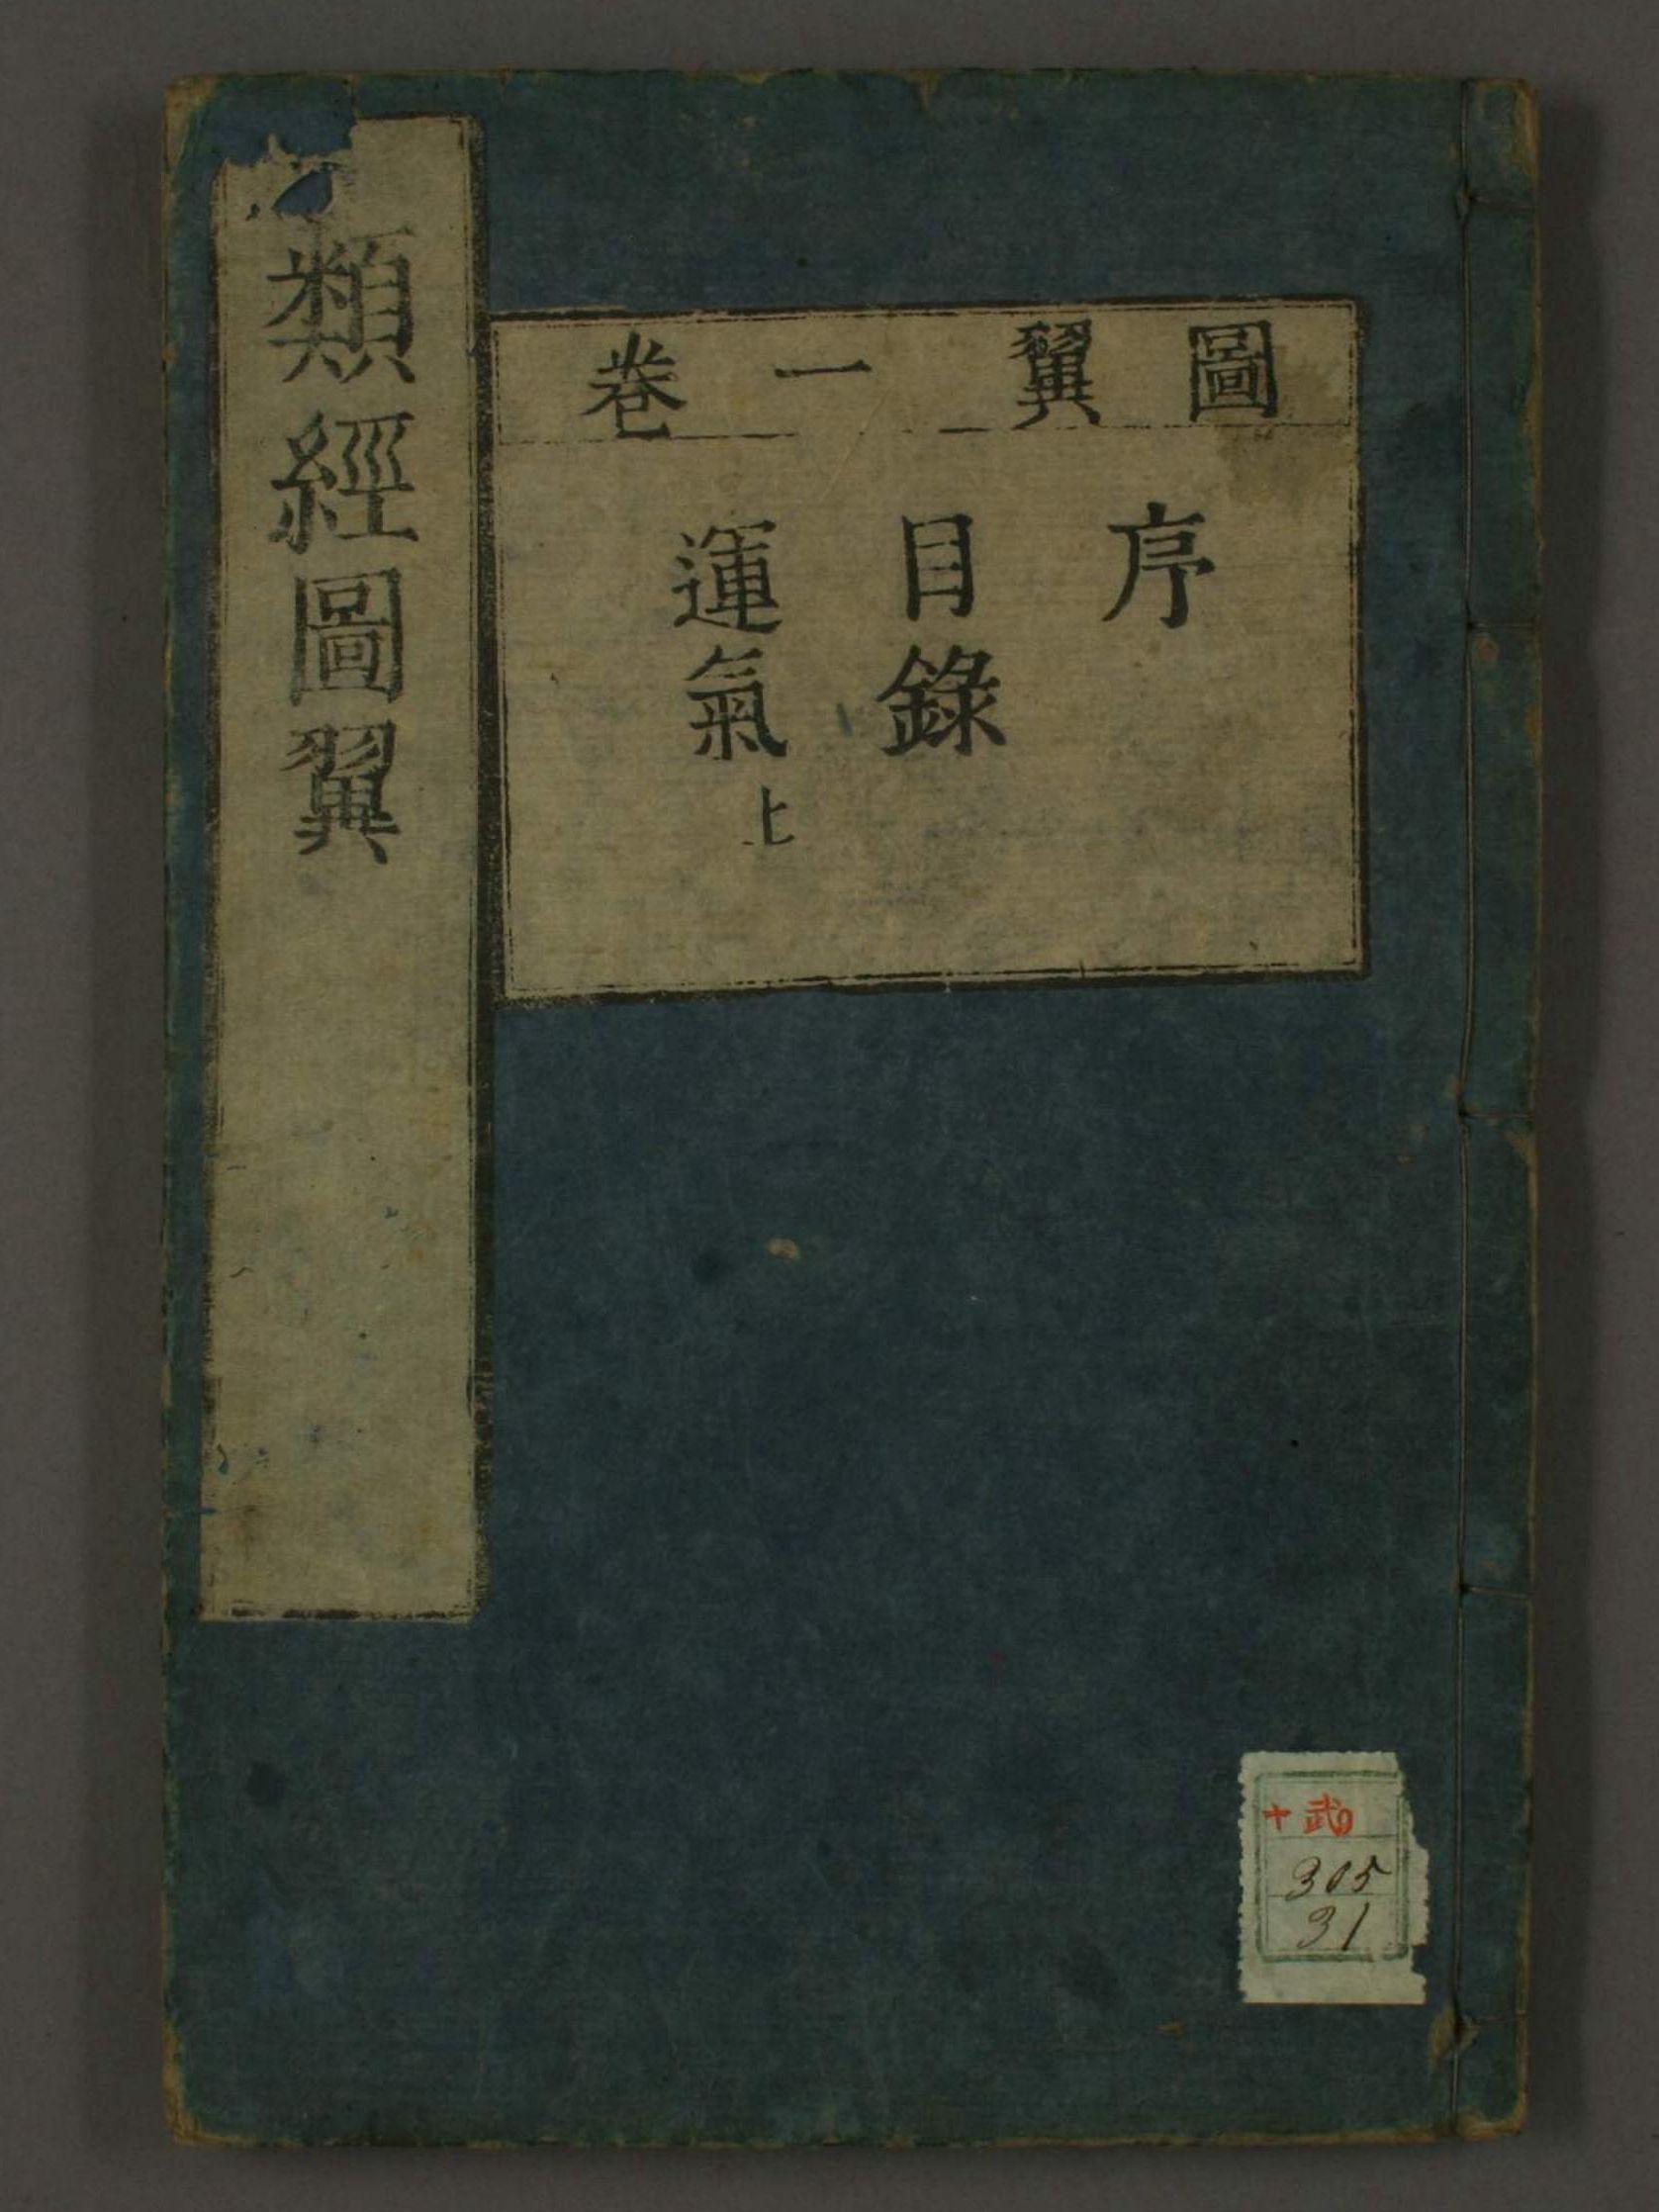 類經圖翼
圖翼 一卷
序
目錄
運氣上
十武
305
31